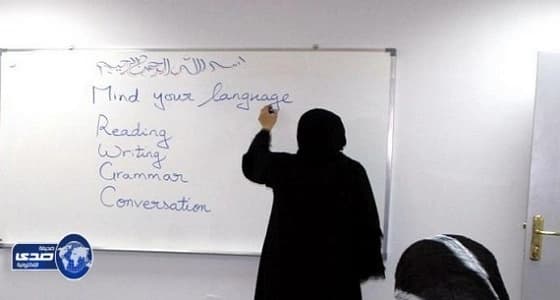 بسم الله الرحمن الرحيم
Mind your language
Reading
Writing
Grammar
Conversation
صحيفة
صدى
الإلكترونية